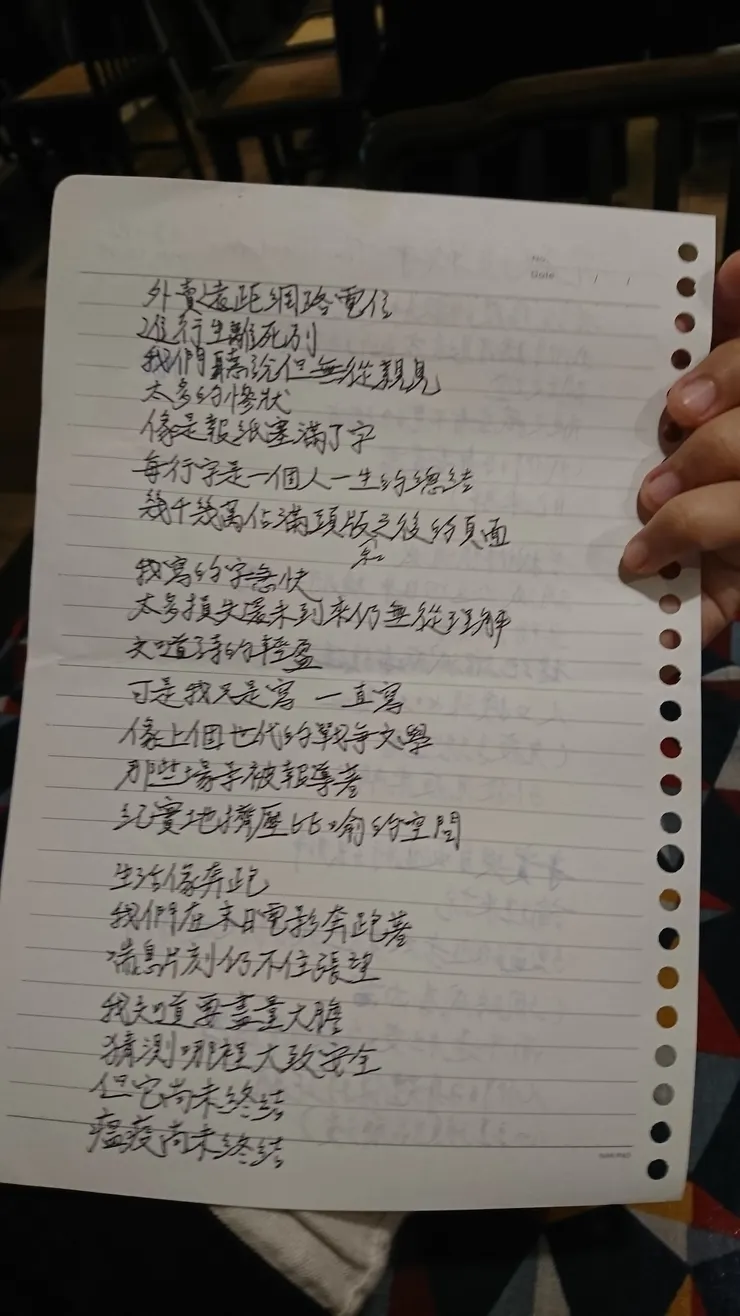 No.
Date / /
外賣遠距網路電信
進行生離死別
我們聽說但無從親見
太多的慘狀
像是報紙塞滿了字
每行字是一個人一生的總結
幾千幾萬佔滿頭版和之後的頁面
我寫的字急快
太多損失還未到來仍無從理解
知道詩的輕盈
可是我只是寫 一直寫
像上個世代的戰爭文學
那些場景被報導著
紀實地擠壓比喻的空間
生活像奔跑
我們在末日電影奔跑著
喘息片刻仍不住張望
我知道要盡量大膽
猜測哪裡大致安全
但它尚未終結
瘟疫尚未終結